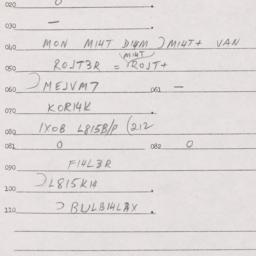 020 0
030 —
040 MON MI4T DI4M )MI4T+ VAN
MI4T
050 ROJT3R = ROJT+
060 )MEJVM7 061 —
070 KORI4K
080 IXOB L815B/P (212
081 0 082 0
090 FI4L3R
100 )L815KI4
110 )BULBI4LBX